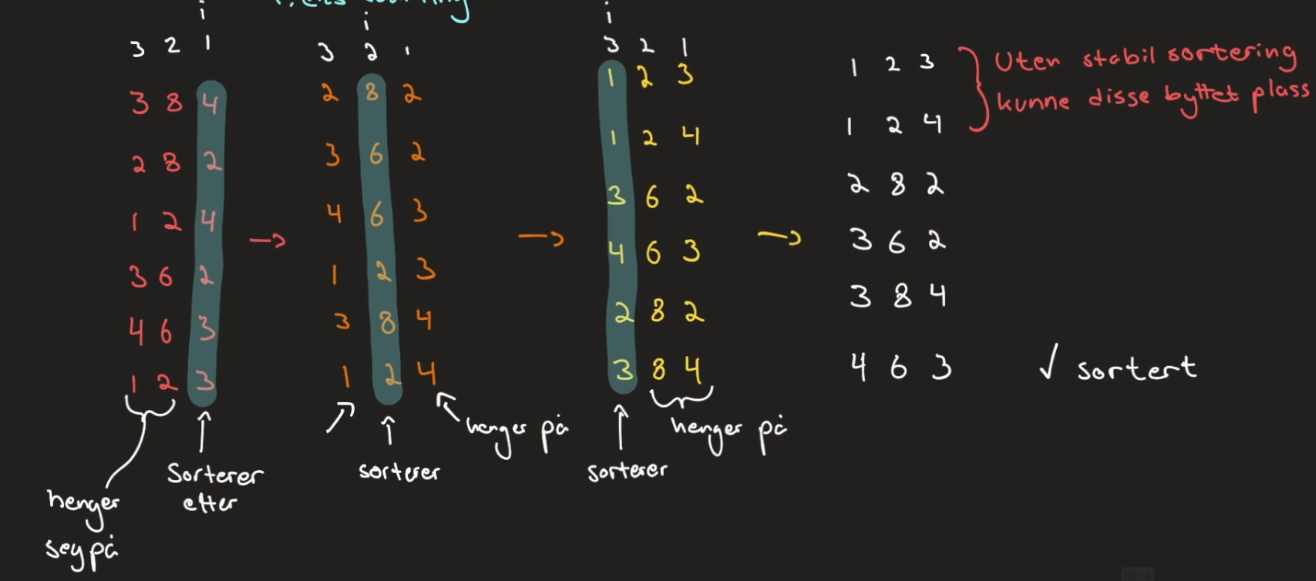 i i i
3 2 1
3 8 4
2 8 2
1 2 4
3 6 2
4 6 3
1 2 3
henger
seg på
Sorterer
etter
→
3 2 1
2 8 2
3 6 2
4 6 3
1 2 3
3 8 4
1 2 4
sorterer
henger på
→
3 2 1
1 2 3
1 2 4
3 6 2
4 6 3
2 8 2
3 8 4
sorterer
henger på
→
1 2 3
1 2 4
2 8 2
3 6 2
3 8 4
4 6 3
Uten stabil sortering
kunne disse byttet plass
✓ sortert